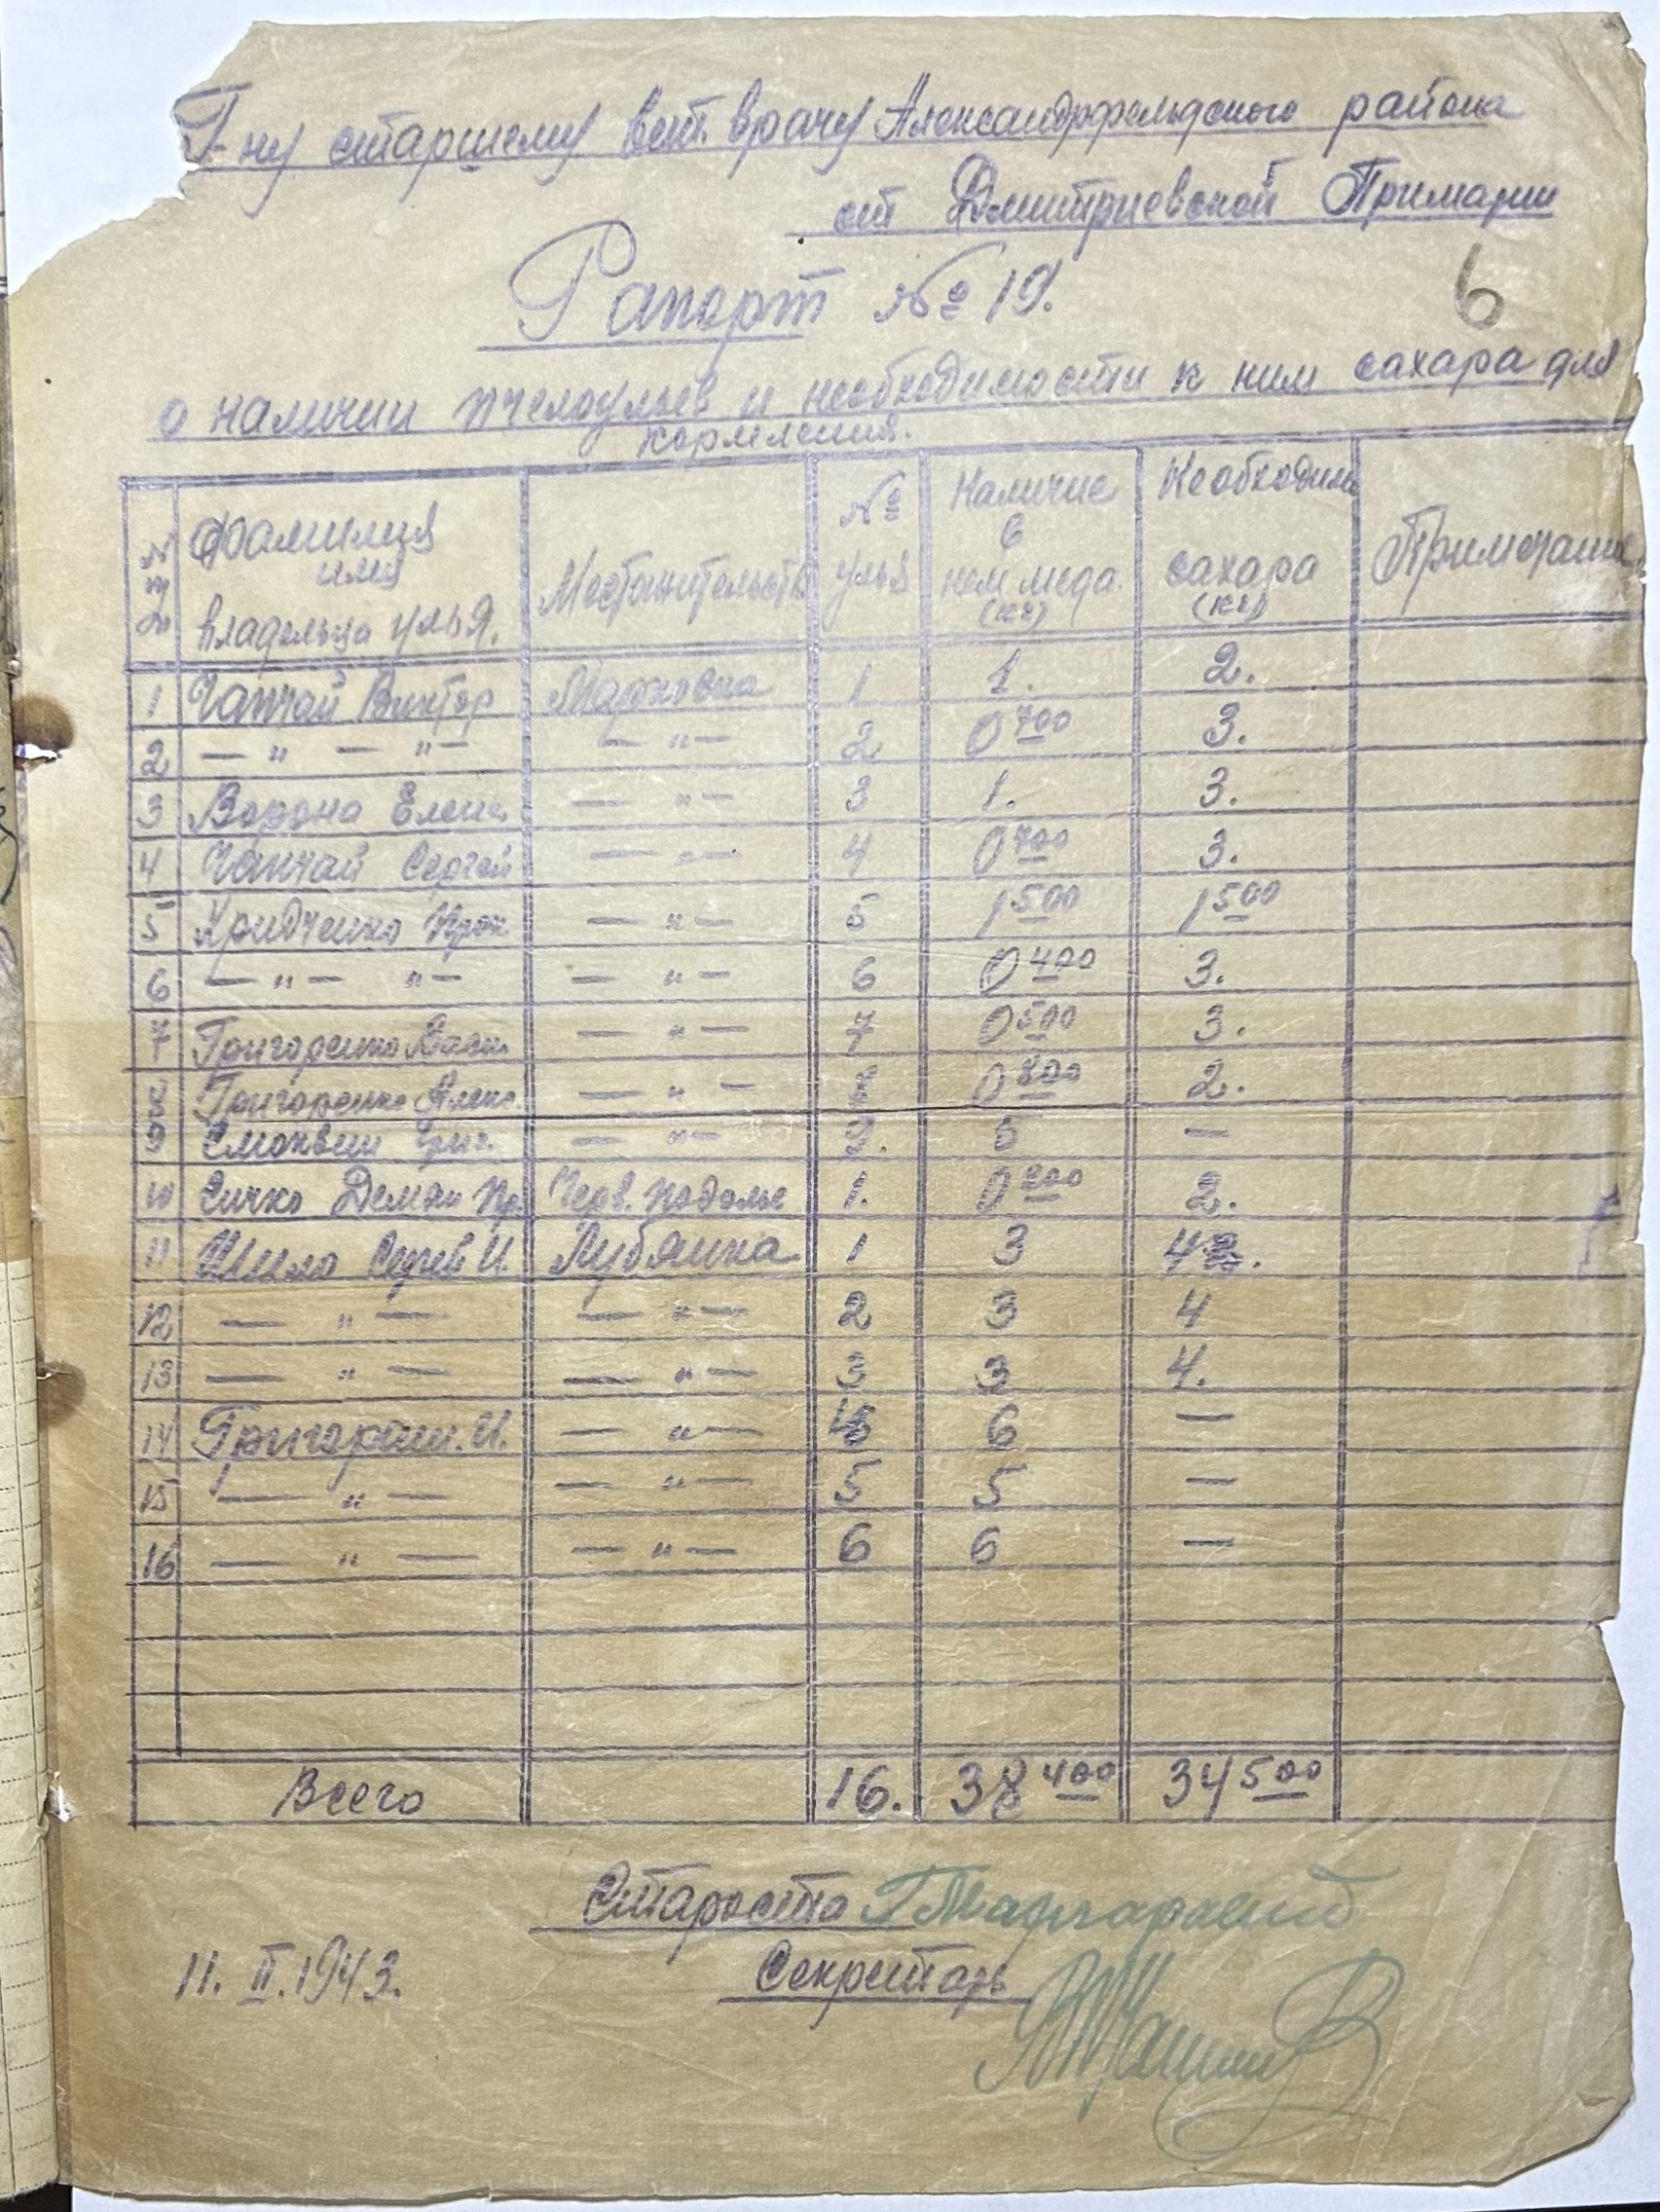 Г-ну старшему вет. врачу Александрфельдского района
от Дмитриевской Примарии
Рапорт № 19.
6
о наличии пчелоульев и необходимости к ним сахара для
кормления.
Фамилия имя владельца улья. Местожительство № улья Наличие в нем меда (кг) Необходимо сахара (кг) Примечание
1 Чапчай Виктор Марковка 1 1. 2.
2 — „ — „ — — „ — 2 0 700 3.
3 Ворона Елена — „ — 3 1. 3.
4 Чапчай Сергей — „ — 4 0 700 3.
5 Кридченко Прок — „ — 5 1 500 1 500
6 — „ — „ — — „ — 6 0 400 3.
7 Григоренко Васи. — „ — 7 0 500 3.
8 Григоренко Алек. — „ — 8 0 800 2.
9 Смоквин Григ. — „ — 9. 5 —
10 Сичко Демян Пр. Черв. Подолье 1. 0 800 2.
11 Шило Сергей И. Лубянка 1 3 4.
12 — „ — — „ — 2 3 4
13 — „ — — „ — 3 3 4.
14 Григораш. И. — „ — 4 6 —
15 — „ — — „ — 5 5 —
16 — „ — — „ — 6 6 —
Всего 16. 38 400 34 500
Староста
11. II. 1943. Секретарь